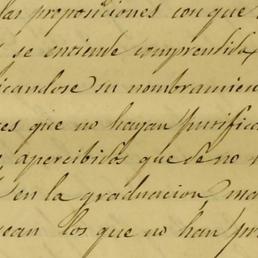 las proposiciones con que
se entiende comprendida
candose su nombramien
es que no hayan purifica
apercibidos que de no
en la graduacion, ma
ean los que no han pu